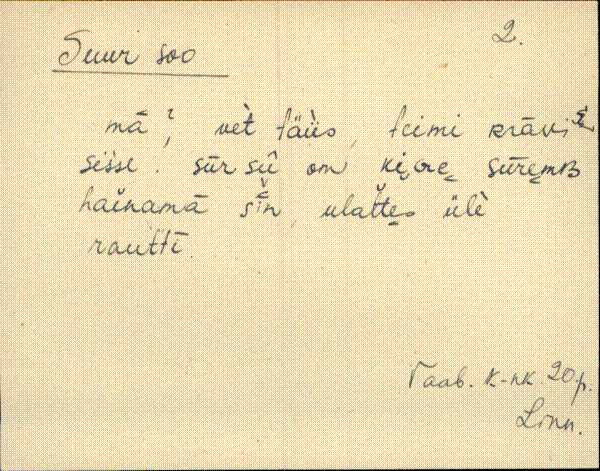 Suur soo 2.
māˀ, vèt täüs, teimi krāvi
sisse. sūr sū om kige sūremB
hàinamā sīn, ulattes ülè
rauttī
Taab. k-nk. 20 p.
Linn.